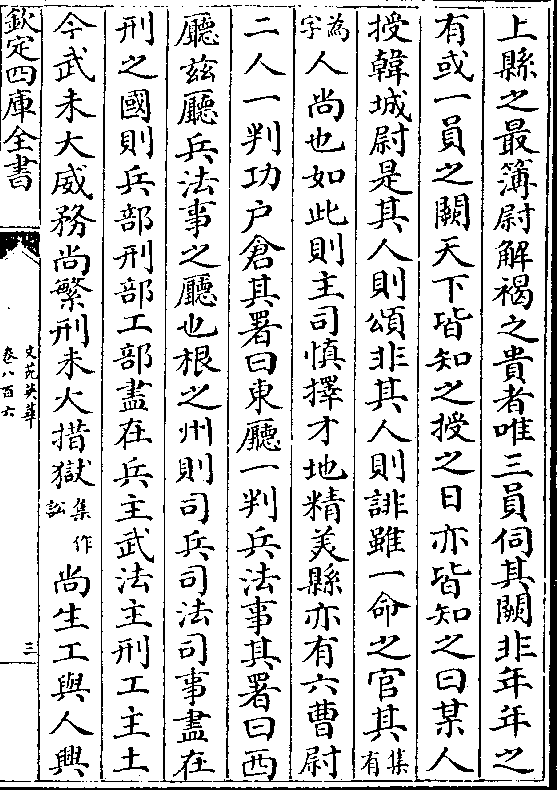 上縣之最簿尉解褐之貴者唯三員伺其闕非年年之
有或一員之闕天下皆知之授之日亦皆知之曰某人
授韓城尉是其人則頌非其人則誹雖一命之官其集有
為字人尚也如此則主司慎擇才地精美縣亦有六曹尉
二人一判功户倉其署曰東廳一判兵法事其署曰西
廳兹廳兵法事之廳也根之州則司兵司法司事盡在
刑之國則兵部刑部工部盡在兵主武法主刑工主土
今武未大威務尚繁刑未大措獄集作訟尚生工與人興
欽定四庫全書
文苑英華
卷八百六
三